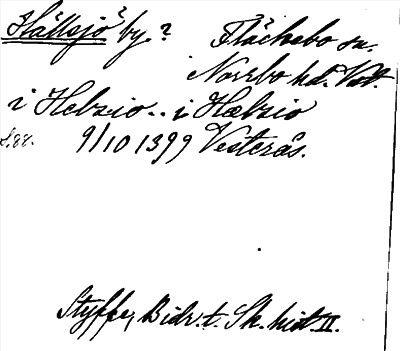 Hällsjö? by.? Fläckebo sn.
Norrbo hd. Vstl.
i Helzio.. i Hælzio
s.88. 9/10 1399 Vesterås.
Styffe, Bidr. t. Sk. hist. II.